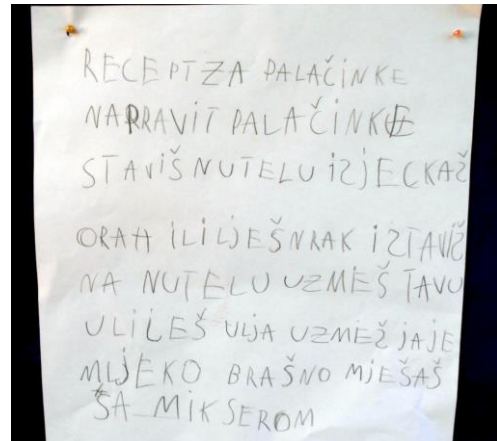 RECEPT ZA PALAČINKE
NAPRAVIT PALAČINKE
STAVIŠ NUTELU IZJECKAŽ
ORAH ILI LJEŠNRAK I ZTAVIŽ
NA NUTELU UZMEŠ TAVU
ULILEŠ ULJA UZMEŽ JAJE
MLJEKO BRAŠNO MJEŠAŠ
ŠA MIKSEROM